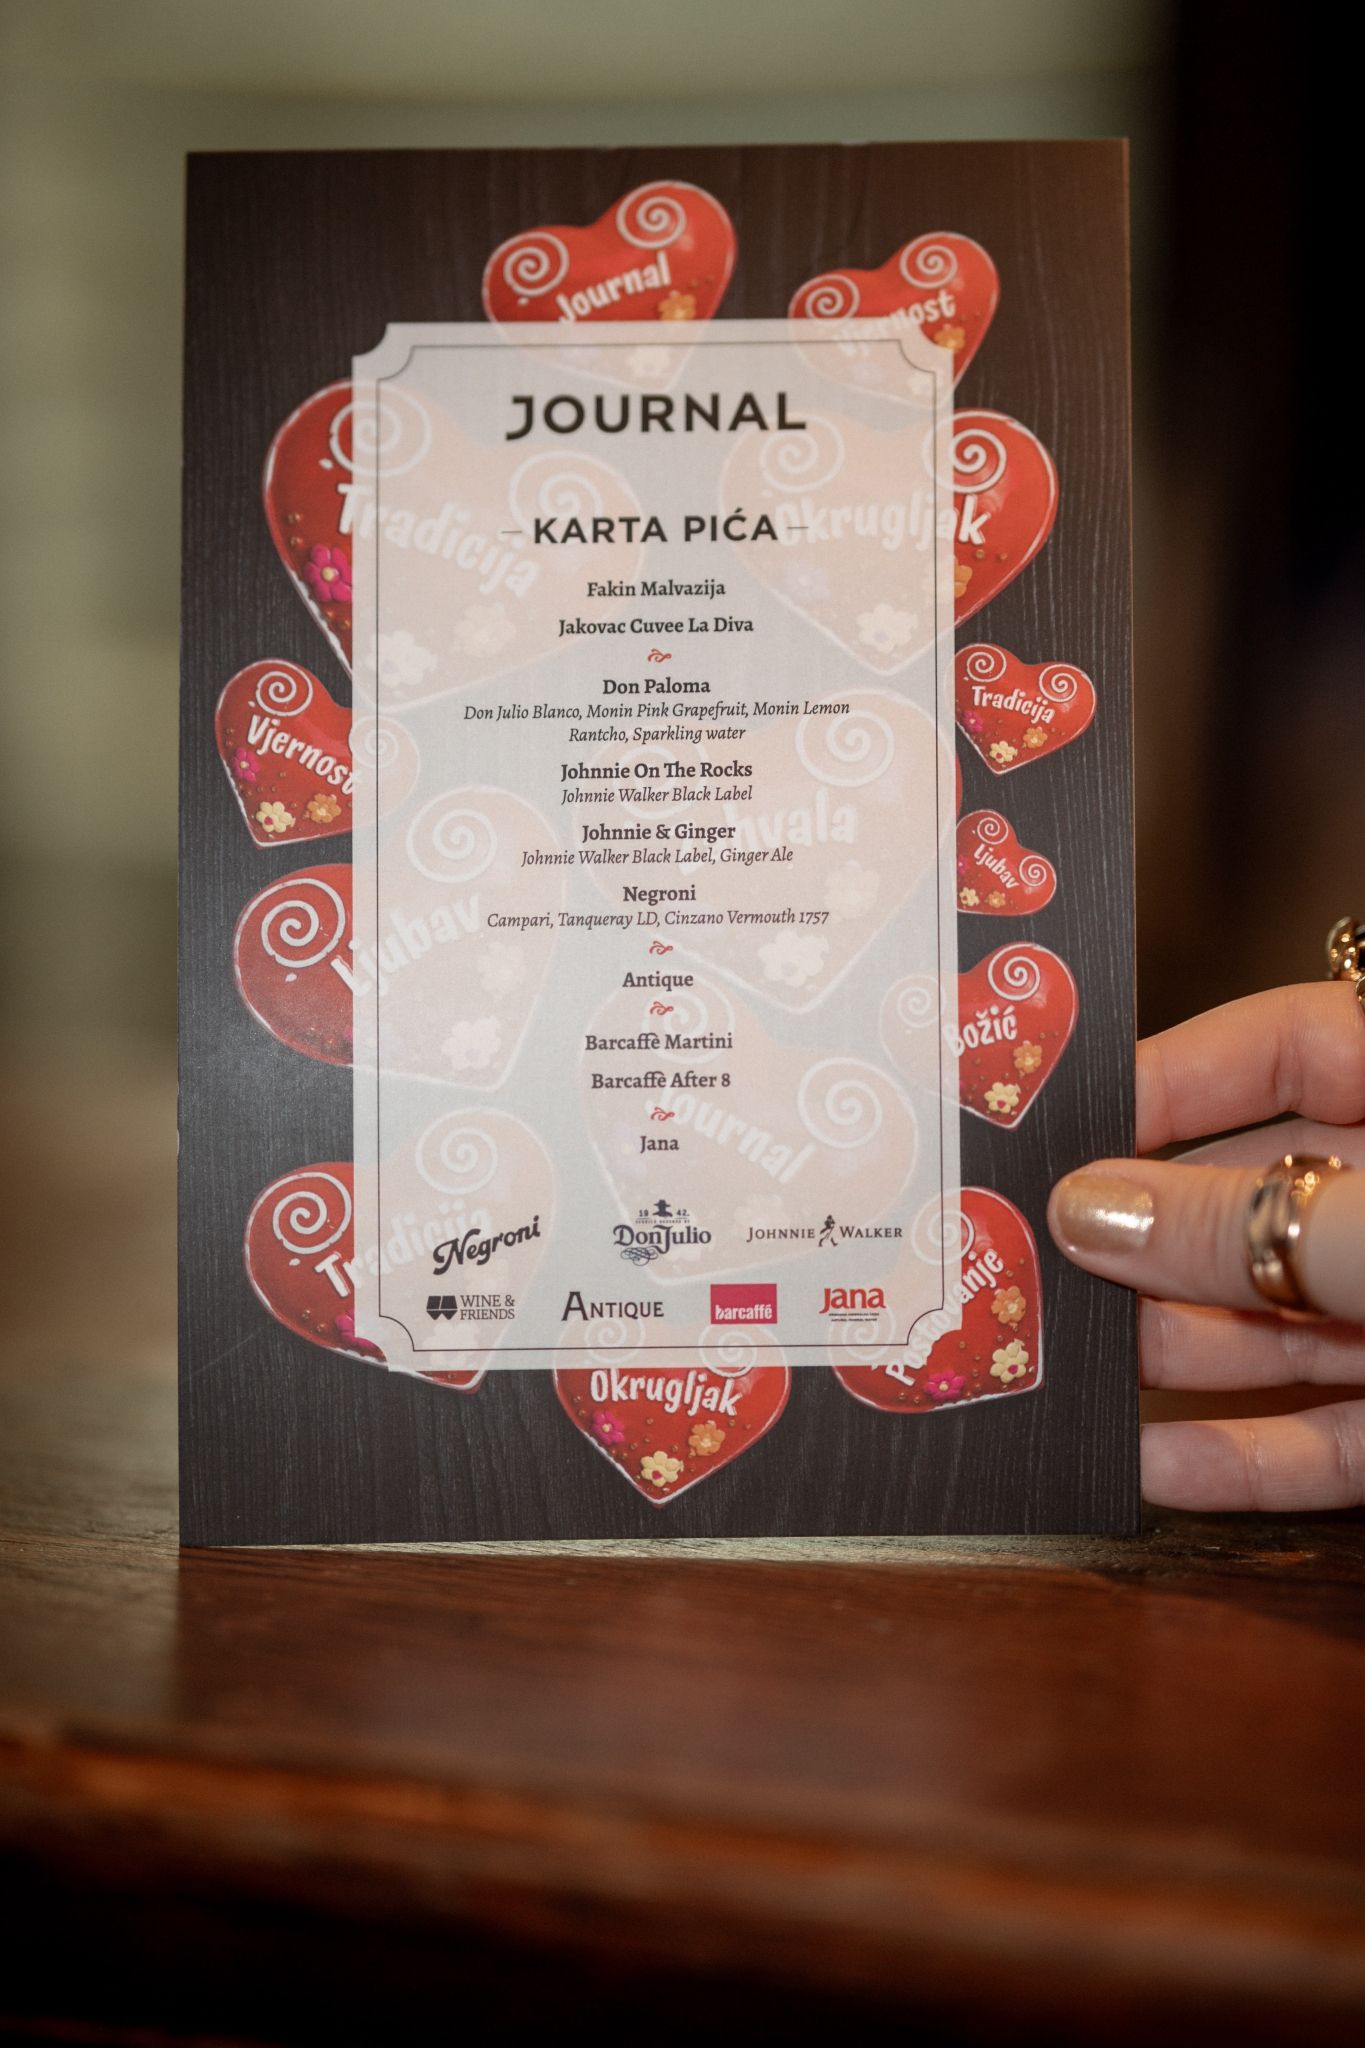 Journal
Vjernost
JOURNAL
Tradicija
Okrugljak
– KARTA PIĆA –
Fakin Malvazija
Jakovac Cuvee La Diva
Don Paloma
Don Julio Blanco, Monin Pink Grapefruit, Monin Lemon
Rantcho, Sparkling water
Johnnie On The Rocks
Johnnie Walker Black Label
Johnnie & Ginger
Johnnie Walker Black Label, Ginger Ale
Negroni
Campari, Tanqueray LD, Cinzano Vermouth 1757
Antique
Barcaffè Martini
Barcaffè After 8
Jana
Vjernost
Tradicija
hvala
Ljubav
Ljubav
Božić
Journal
Tradicija
Negroni
19 42.
Don Julio
JOHNNIE WALKER
WINE &
FRIENDS
ANTIQUE
barcaffé
Jana
Poštovanje
Okrugljak